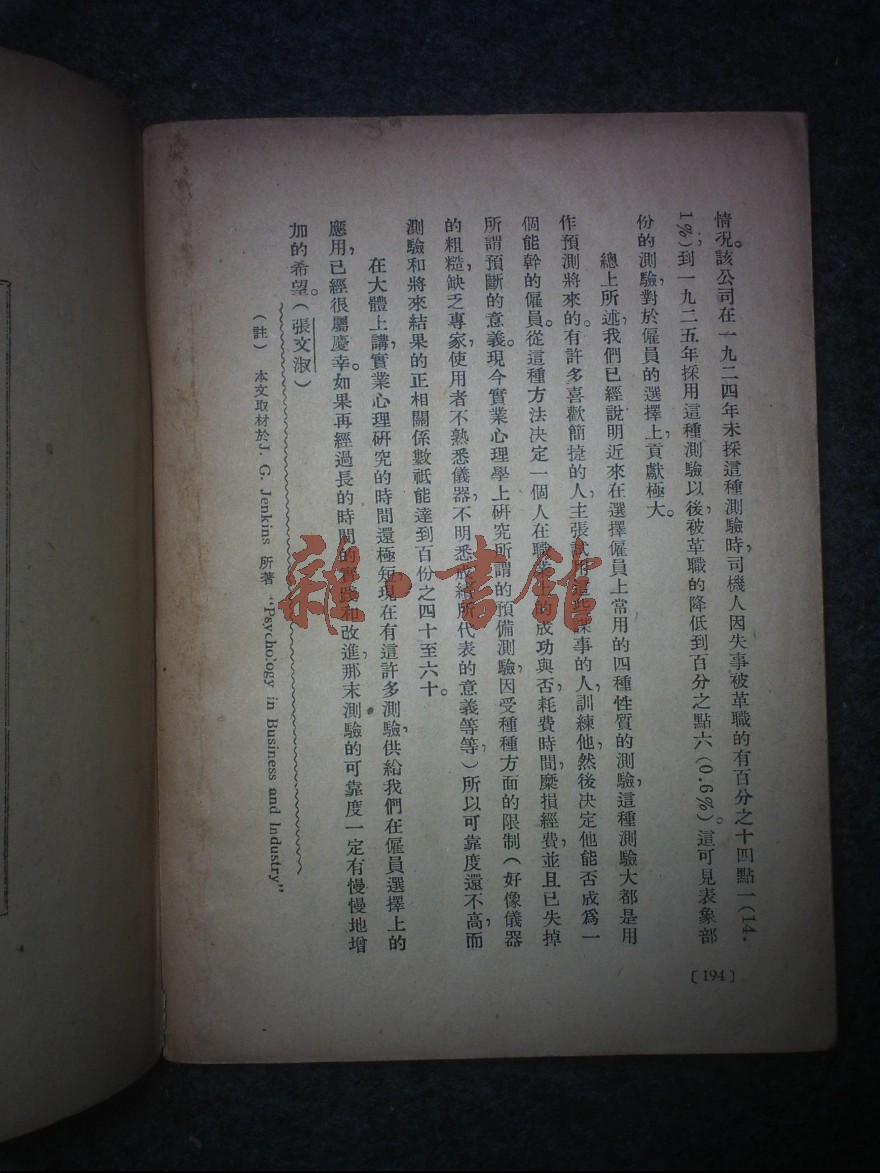 情况。該公司在一九二四年未採這種測驗時，司機人因失事被革職的有百分之十四點一(14.
1%)，到一九二五年採用這種測驗以後，被革職的降低到百分之點六(0.6%)。這可見表象部
份的測驗，對於僱員的選擇上，貢獻極大。
總上所述，我們已經說明近來在選擇僱員上常用的四種性質的測驗，這種測驗大都是用
作預測將來的。有許多喜歡簡捷的人，主張試用這些謀事的人，訓練他，然後決定他能否成爲一
個能幹的僱員。從這種方法决定一個人在職業上的成功與否，耗費時間，糜損經費，並且已失掉
所謂預斷的意義。現今實業心理學上研究所謂的預備測驗，因受種種方面的限制(好像儀器
的粗糙，缺乏專家，使用者不熟悉儀器，不明悉成績所代表的意義等等，)所以可靠度還不高，而
測驗和將來結果的正相關係數祇能達到百份之四十至六十。
在大體上講，實業心理研究的時間還極短，現在有這許多測驗，供給我們在僱員選擇上的
應用，已經很屬慶幸。如果再經過長的時間的實踐和改進，那末測驗的可靠度一定有慢慢地增
加的希望。(張文淑)
(註) 本文取材於J. G. Jenkins 所著 "Psycho'ogy in Business and Industry"
[194]
雜·書館